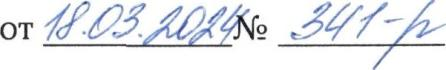 от 18.03.2024 № 341-р